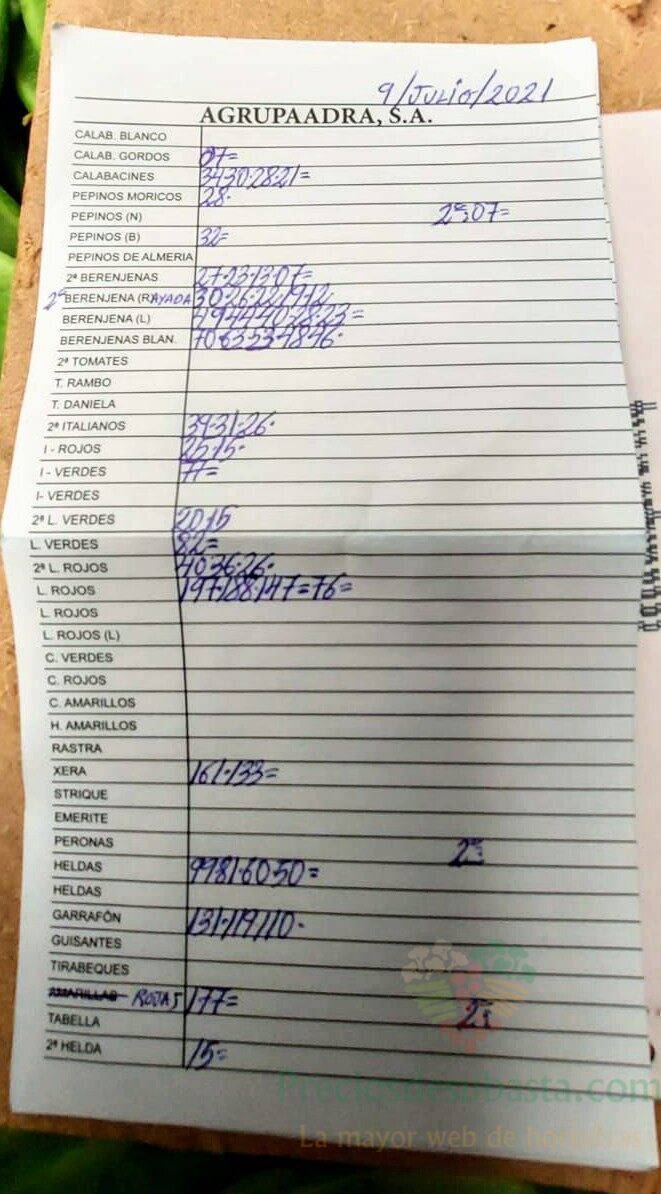 9/JULIO/2021
AGRUPAADRA, S.A.
CALAB. BLANCO
CALAB. GORDOS 07=
CALABACINES 34·30·28·21=
PEPINOS MORICOS 28·
PEPINOS (N) 2ªS 07=
PEPINOS (B) 32=
PEPINOS DE ALMERIA
2ª BERENJENAS 27·23·13·07=
2ª BERENJENA (R)AYADA 30·26·22·19·12
BERENJENA (L) 49·44·40·28·23=
BERENJENAS BLAN. 70·63·53·48·46·
2ª TOMATES
T. RAMBO
T. DANIELA
2ª ITALIANOS 39·31·26·
I - ROJOS 25·15·
I - VERDES 77=
I- VERDES
2ª L. VERDES 20·15
L. VERDES 82=
2ª L. ROJOS 40·36·26·
L. ROJOS 197·188·147=76=
L. ROJOS
L. ROJOS (L)
C. VERDES
C. ROJOS
C. AMARILLOS
H. AMARILLOS
RASTRA
XERA 161·133=
STRIQUE
EMERITE
PERONAS 2ªS
HELDAS 99·81·60·50=
HELDAS
GARRAFÓN 131·119·110·
GUISANTES
TIRABEQUES
AMARILLAS ROJAS 177= 2ªS
TABELLA
2ª HELDA 15=
Preciosdesubasta.com
La mayor web de hortalizas